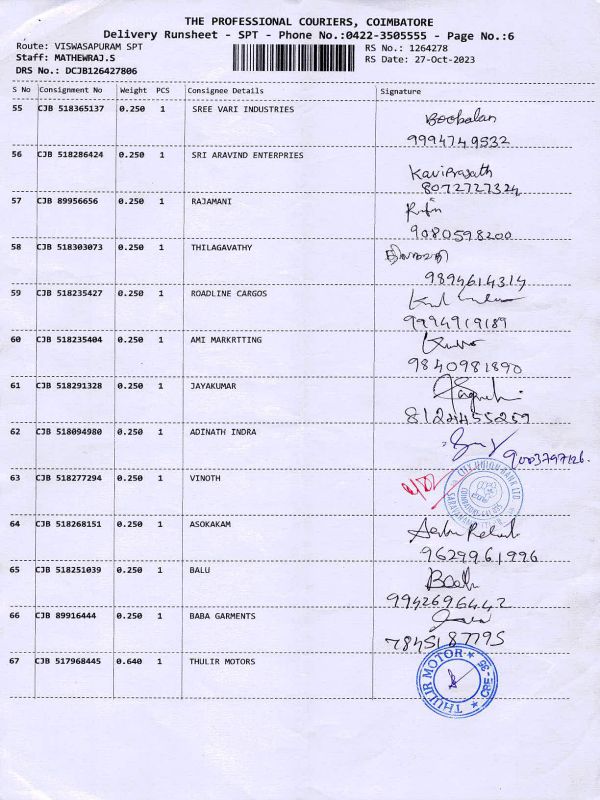 THE PROFESSIONAL COURIERS, COIMBATORE
Delivery Runsheet - SPT - Phone No.:0422-3505555 - Page No.:6
Route: VISWASAPURAM SPT RS No.: 1264278
Staff: MATHEWRAJ.S RS Date: 27-Oct-2023
DRS No.: DCJB126427806
S No Consignment No Weight PCS Consignee Details Signature
55 CJB 518365137 0.250 1 SREE VARI INDUSTRIES
Boobalan
9994749532
56 CJB 518286424 0.250 1 SRI ARAVIND ENTERPRIES
Kaviprasath
8072727324
57 CJB 89956656 0.250 1 RAJAMANI
9080598200
58 CJB 518303073 0.250 1 THILAGAVATHY
9894614314
59 CJB 518235427 0.250 1 ROADLINE CARGOS
9994919189
60 CJB 518235404 0.250 1 AMI MARKRTTING
9840981890
61 CJB 518291328 0.250 1 JAYAKUMAR
8124455259
62 CJB 518094980 0.250 1 ADINATH INDRA
9003797126.
63 CJB 518277294 0.250 1 VINOTH
CITY UNION BANK LTD
64 CJB 518268151 0.250 1 ASOKAKAM
9629961996
65 CJB 518251039 0.250 1 BALU
9942696442
66 CJB 89916444 0.250 1 BABA GARMENTS
7845187795
67 CJB 517968445 0.640 1 THULIR MOTORS
THULIR MOTOR CBE-35